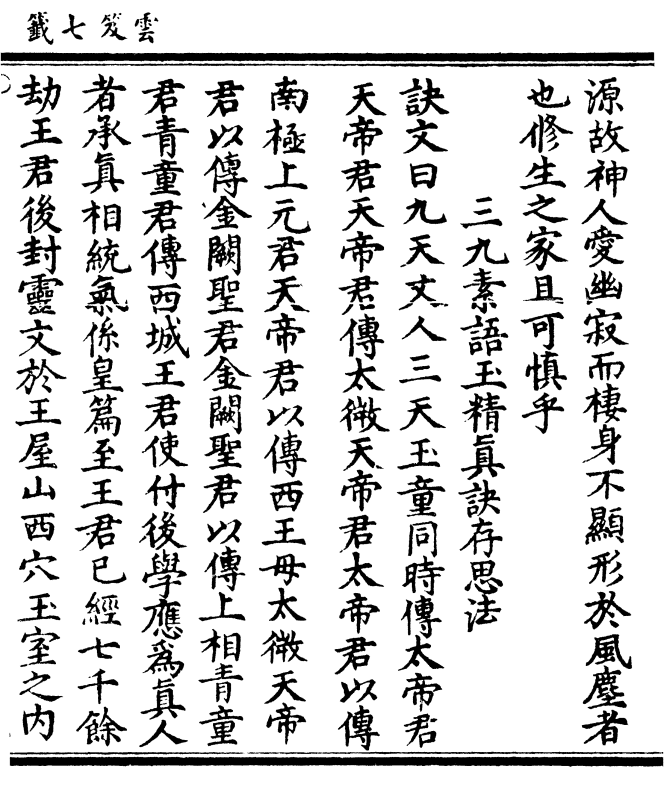 雲笈七籤
源故神人愛幽寂而棲身不顯形於風塵者
也修生之家且可慎乎
三九素語玉精真訣存思法
訣文曰九天丈人三天玉童同時傳太帝君
天帝君天帝君傳太微天帝君太帝君以傳
南極上元君天帝君以傳西王母太微天帝
君以傳金闕聖君金闕聖君以傳上相青童
君青童君傳西城王君使付後學應為真人
者承真相統氣係皇篇至王君已經七千餘
劫王君後封靈文於王屋山西穴玉室之內